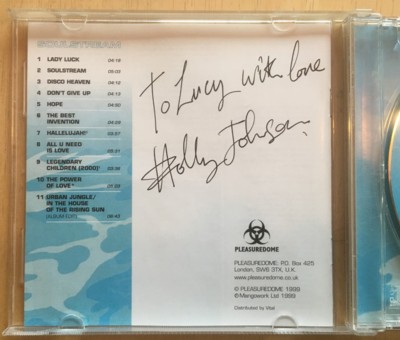 SOULSTREAM
1 LADY LUCK 04:19
2 SOULSTREAM 05:02
3 DISCO HEAVEN 04:12
4 DON'T GIVE UP 04:13
5 HOPE 04:50
6 THE BEST
INVENTION 04:29
7 HALLELUJAH!
8 ALL U NEED
IS LOVE
9 LEGENDARY
CHILDREN (2000)
10 THE POWER
OF LOVE
11 URBAN JUNGLE/
IN THE HOUSE
OF THE RISING SUN
To Lucy with love
Holly Johnson
PLEASUREDOME
PLEASUREDOME: P.O. Box 425
London, SW6 3TX, U.K.
www.pleasuredome.co.uk
℗ PLEASUREDOME 1999
© Mangowork Ltd 1999
Distributed by Vital